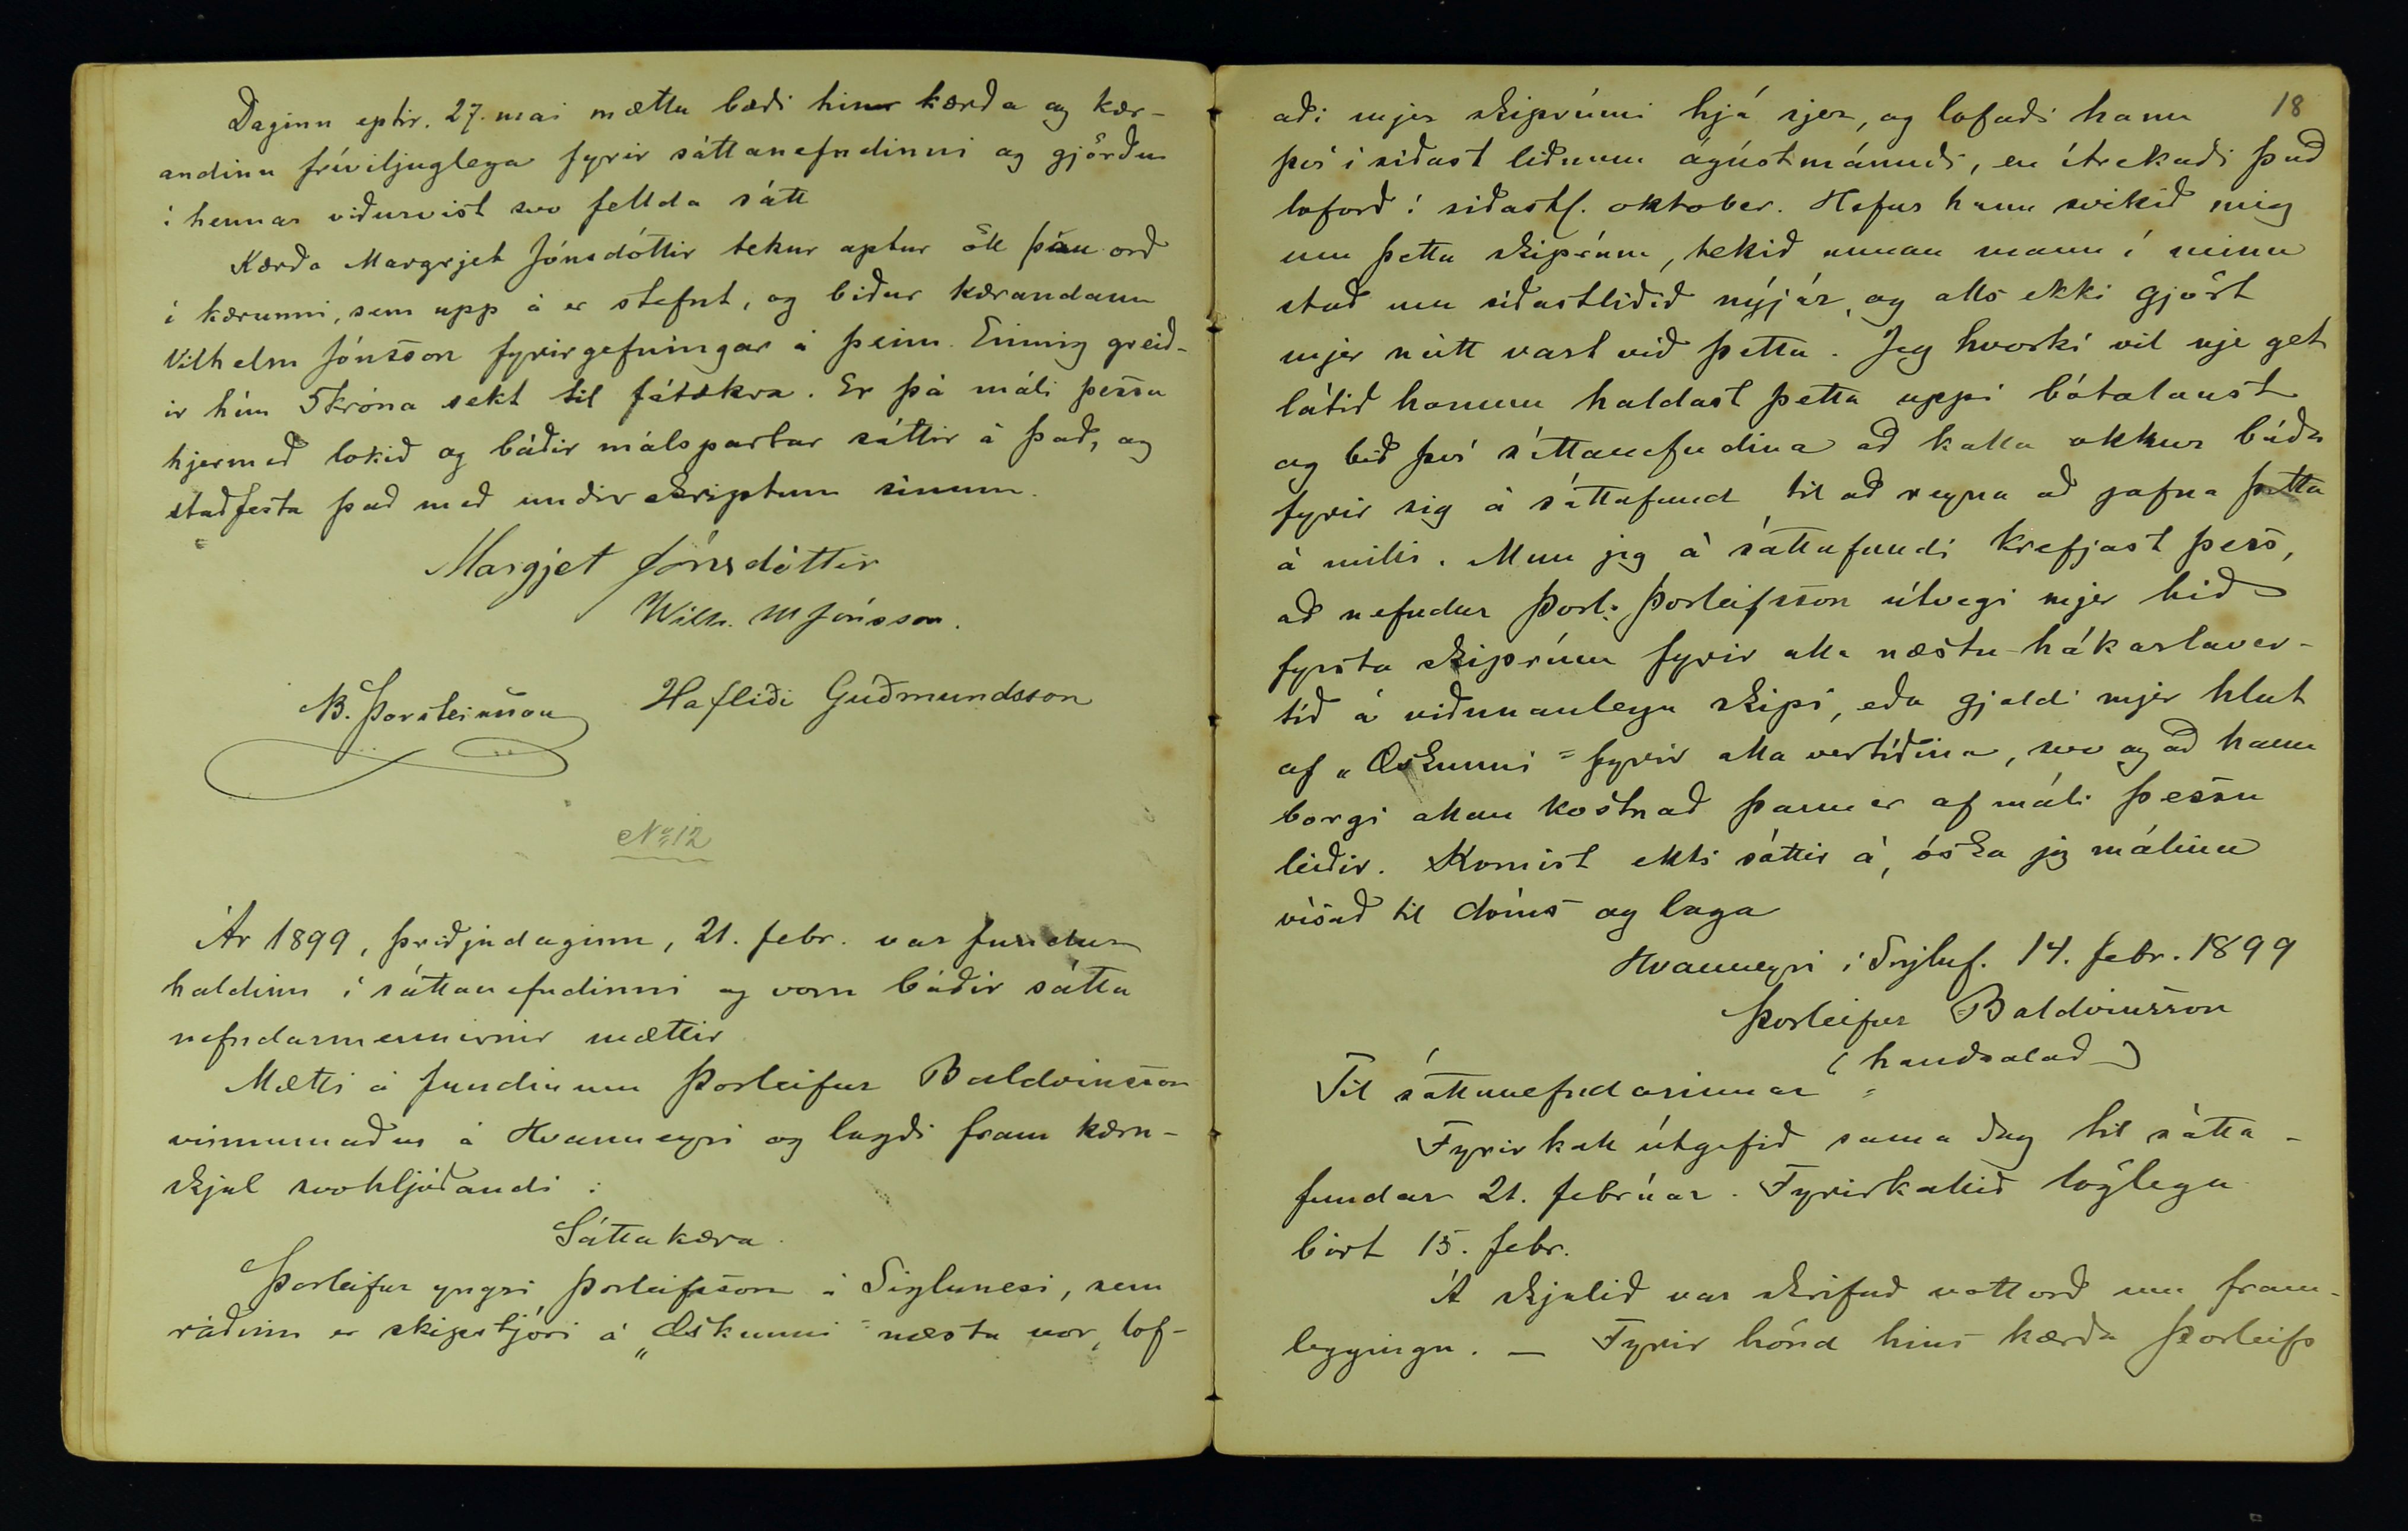 Daginn eptir. 27. mai mættu bæði hinn kærða og kær-
andinn fríviljuglega fyrir sáttanefndinni og gjörðu
í hennar viðurvist svo fellda sátt
Kærða Margrjet Jónsdóttir tekur aptur öll þau orð
í kærunni, sem upp á er stefnt, og biður kærandann
Vilhelm Jónsson fyrirgefningar á þeim. Einnig greið-
ir hún 5 króna sekt til fátækra. Er þá máli þessu
hjermeð lokið og báðir málspartar sáttir á það, og
staðfesta það með undirskriptum sínum.
Margjet Jónsdóttir
Wilh. M Jónsson.
B. Þorsteinsson Hafliði Guðmundsson
No 12
Ár 1899, þriðjudaginn, 21. febr. var fundur
haldinn í sáttanefndinni og voru báðir sátta
nefndarmennirnir mættir
Mætti á fundinum Þorleifur Baldvinsson
vinnumaður á Hvanneyri og lagði fram kæru-
skjal svohljóðandi:
Sáttakæra.
Þorleifur yngri Þorleifsson á Siglunesi, sem
ráðinn er skipstjóri á „Æskunni" næsta vor, lof-
18
aði mjer skiprúmi hjá sjer, og lofaði hann
því í síðast liðnum ágústmánuði, en ítrekaði það
loforð í síðastl. oktober. Hefur hann svikið mig
um þetta skiprúm, tekið annan mann í minn
stað um síðastliðið nýjár, og alls ekki gjört
mjer neitt vart við þetta. Jeg hvorki vil nje get
látið honum haldast þetta uppi bótalaust
og bið því sáttanefndina að kalla okkur báða
fyrir sig á sáttafund til að reyna að jafna þetta
á milli. Mun jeg á sáttafundi krefjast þess,
að nefndur Þorl. Þorleifsson útvegi mjer hið
fyrsta skiprúm fyrir alla næstu hákarlaver-
tíð á viðunanlegu skipi, eða gjaldi mjer hlut
af „Æskunni" fyrir alla vertíðina, svo og að hann
borgi allan kostnað þann er af máli þessu
leiðir. Komist ekki sáttir á, óska jeg málinu
vísað til dóms og laga
Hvanneyri í Sigluf. 14. febr. 1899
Þorleifur Baldvinsson
(handsalað)
Til sáttanefndarinnar
Fyrirkall útgefið sama dag til sátta-
fundar 21. febrúar. Fyrirkallið löglega
birt 15. febr.
Á skjalið var skrifað vottorð um fram-
leggingu. — Fyrir hönd hins kærða Þorleifs